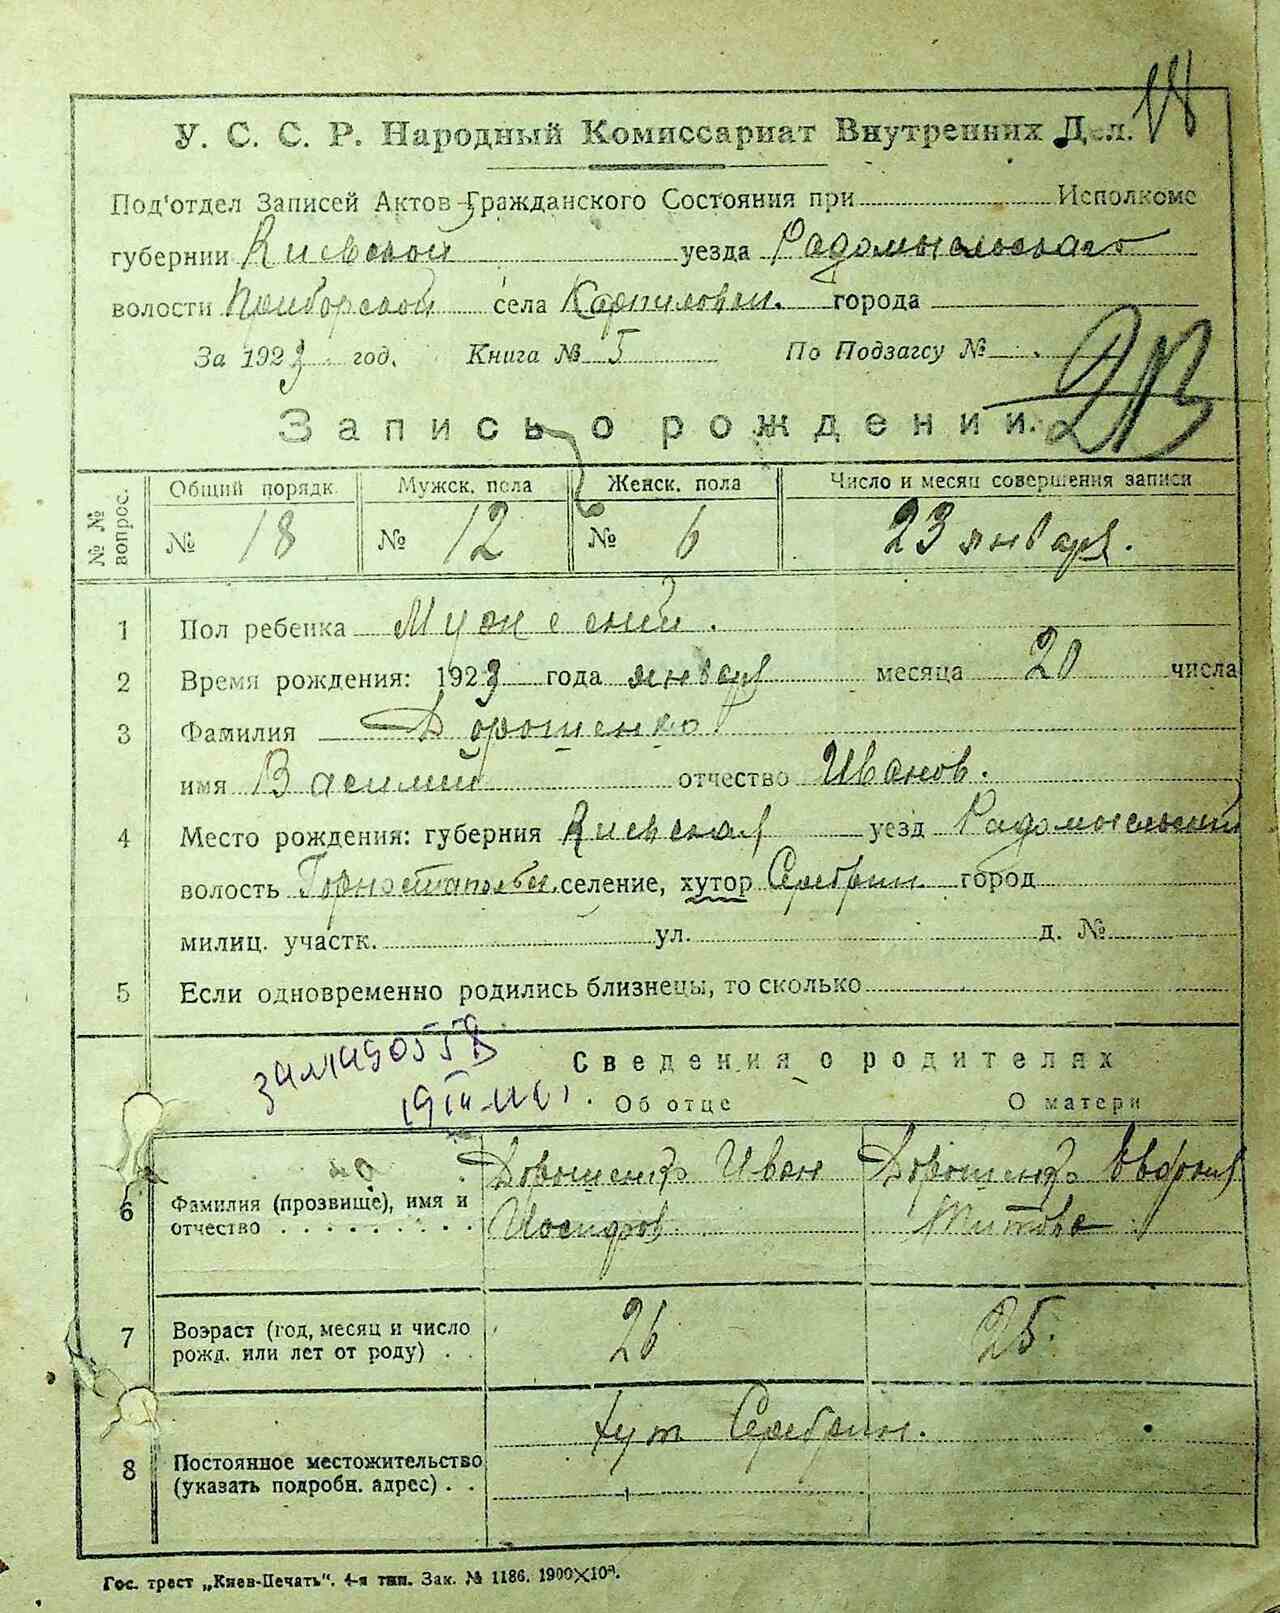 У. С. С. Р. Народный Комиссариат Внутренних Дел.
Под'отдел Записей Актов Гражданского Состояния при Исполкоме
губернии Киевской уезда Радомысльского
волости села Карпиловки. города
За 1923 год. Книга № 5 По Подзагсу №
213
Запись о рождении.
№№ вопрос. Общий порядк. Мужск. пола Женск. пола Число и месяц совершения записи
№ 18 № 12 № 6 23 января.
1 Пол ребенка Мужеский.
2 Время рождения: 1923 года января месяца 20 числа
3 Фамилия Дорошенко
имя Василий отчество Иванов.
4 Место рождения: губерния Киевская уезд Радомысльский
волость селение, хутор Серебрин город
милиц. участк. ул. д. №
5 Если одновременно родились близнецы, то сколько
Сведения о родителях
Об отце О матери
Дорошенко Иван Дорошенко
6 Фамилия (прозвище), имя и отчество Иосифов Титова
7 Возраст (год, месяц и число рожд. или лет от роду) 26 25.
хут Серебрин.
8 Постоянное местожительство (указать подробн. адрес)
Гос. трест „Киев-Печать“. 4-я тип. Зак. № 1186. 1900×10³.